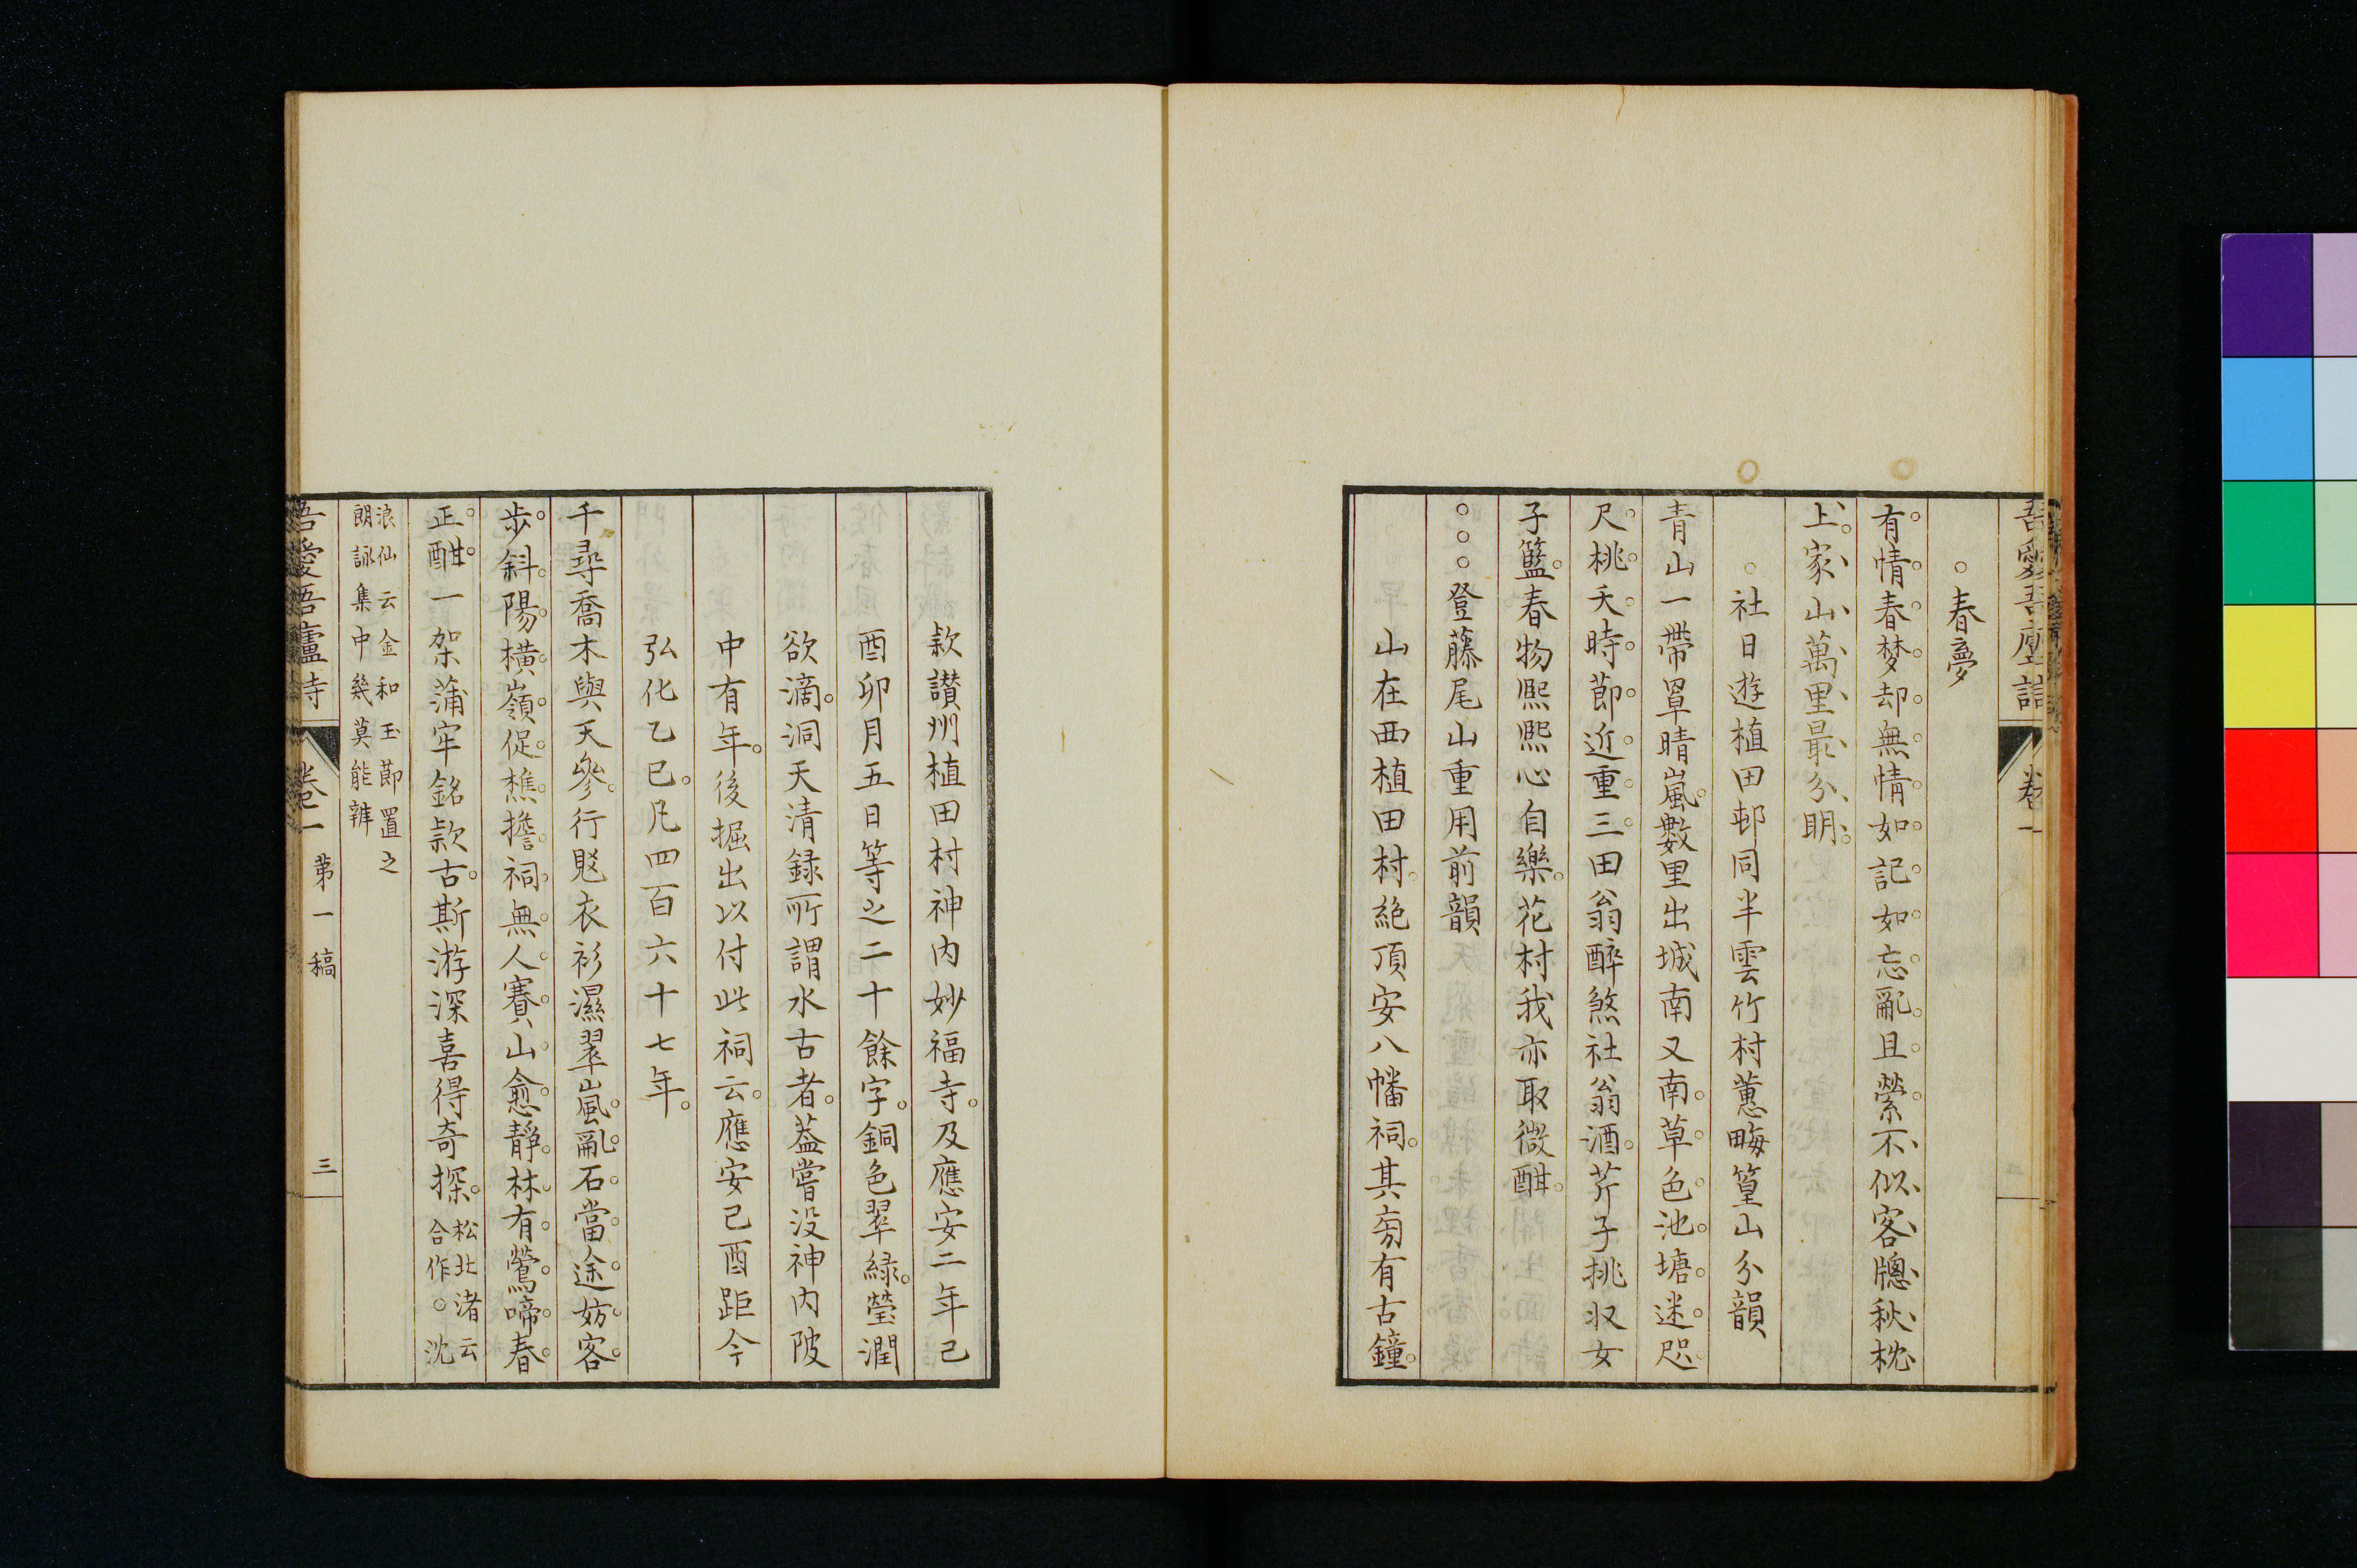 吾愛吾廬詩 卷一
○春夢
有情春梦却無情如記如忘亂且縈不似客牕秋枕
上家山萬里最分明
○社日遊植田邨同半雲竹村蕙畮篁山分韻
青山一帶罩晴嵐數里出城南又南草色池塘迷咫
尺桃夭時節近重三田翁醉煞社翁酒芥子挑收女
子籃春物熙熙心自樂花村我亦取微酣
○○○登藤尾山重用前韻
山在西植田村絶頂安八幡祠其旁有古鐘
款讃州植田村神内妙福寺及應安二年己
酉卯月五日等之二十餘字銅色翠緑瑩潤
欲滴洞天清録所謂水古者葢嘗没神内陂
中有年後掘出以付此祠云應安己酉距今
弘化乙巳凡四百六十七年
千尋喬木與天參行覐衣衫濕翠嵐亂石當途妨客
步斜陽横嶺促樵擔祠無人賽山愈靜林有鶯啼春
正酣一架蒲牢銘款古斯游深喜得奇探 松北渚云
合作○沈
浪仙云金和玉節置之
朗詠集中幾莫能辨
吾愛吾廬詩 卷一 第一稿 三